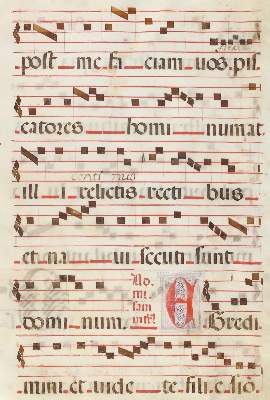 post me fa ciam uos pis
catores homi numat
ill i relictis recti bus
et na ui secuti sunt
domi num. E gredi
mini et uide te filie sio